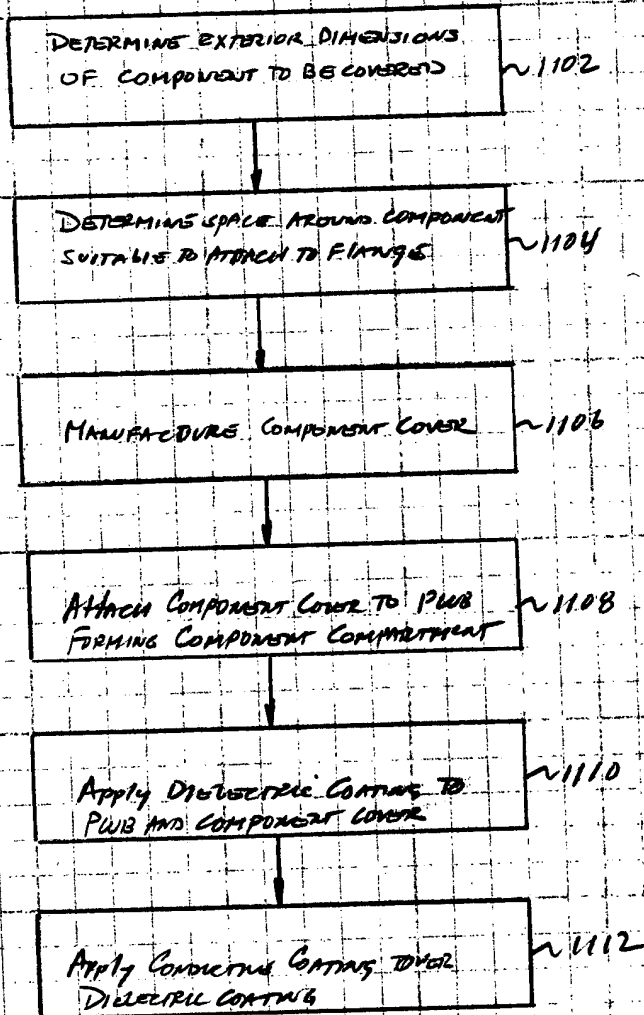 DETERMINE EXTERIOR DIMENSIONS
OF COMPONENT TO BE COVERED
1102
DETERMINE SPACE AROUND COMPONENT
SUITABLE TO ATTACH TO FLANGE
1104
MANUFACTURE COMPONENT COVER
1106
ATTACH COMPONENT COVER TO PWB
FORMING COMPONENT COMPARTMENT
1108
APPLY DIELECTRIC COATING TO
PWB AND COMPONENT COVER
1110
APPLY CONDUCTIVE COATING OVER
DIELECTRIC COATING
1112